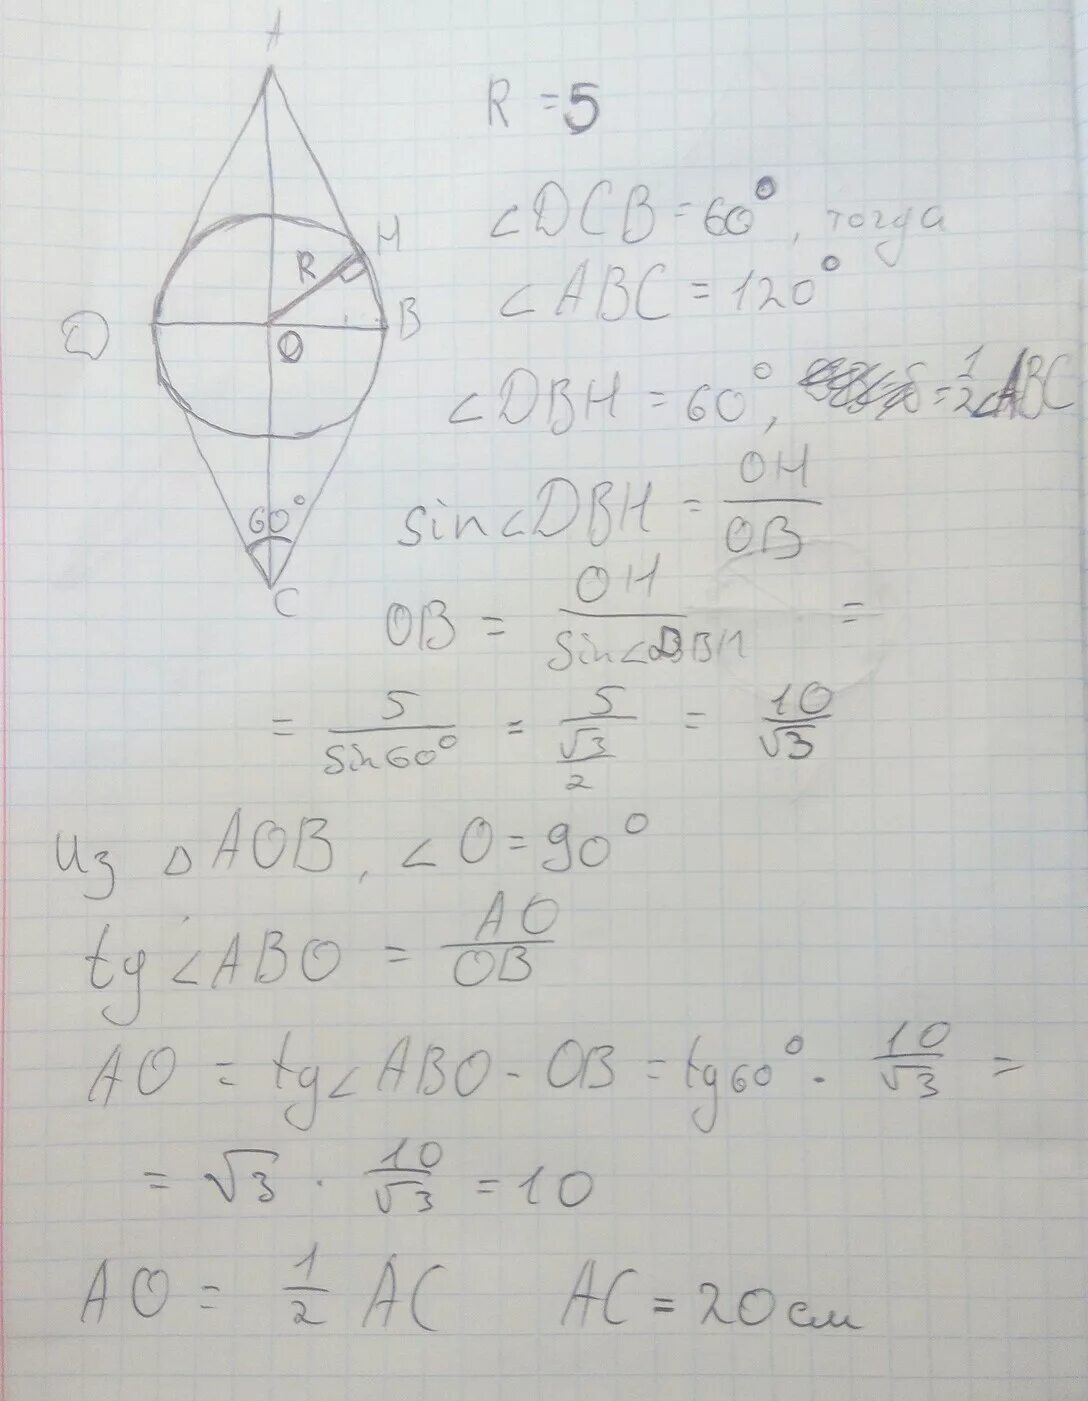 A
R = 5
∠DCB = 60°, тогда
H
R
∠ABC = 120°
D
B
O
∠DBH = 60°, = 1/2 ∠ABC
sin∠DBH = OH/OB
60°
C
OB = OH/sin∠DBH =
= 5/sin60° = 5/(√3/2) = 10/√3
Из △AOB, ∠O = 90°
tg∠ABO = AO/OB
AO = tg∠ABO · OB = tg60° · 10/√3 =
= √3 · 10/√3 = 10
AO = 1/2 AC AC = 20см